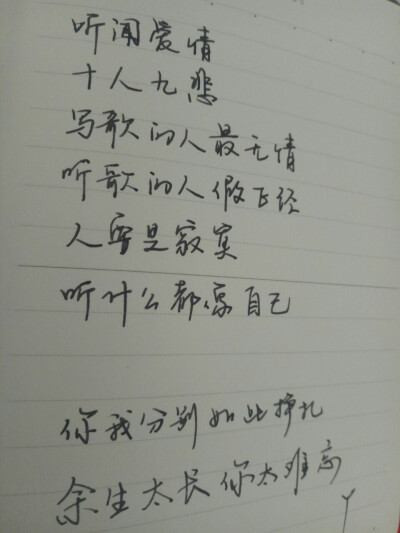 听闻爱情
十人九悲
写歌的人最无情
听歌的人假正经
人要是寂寞
听什么都像自己
你我分别如此挣扎
余生太长你太难忘
丫